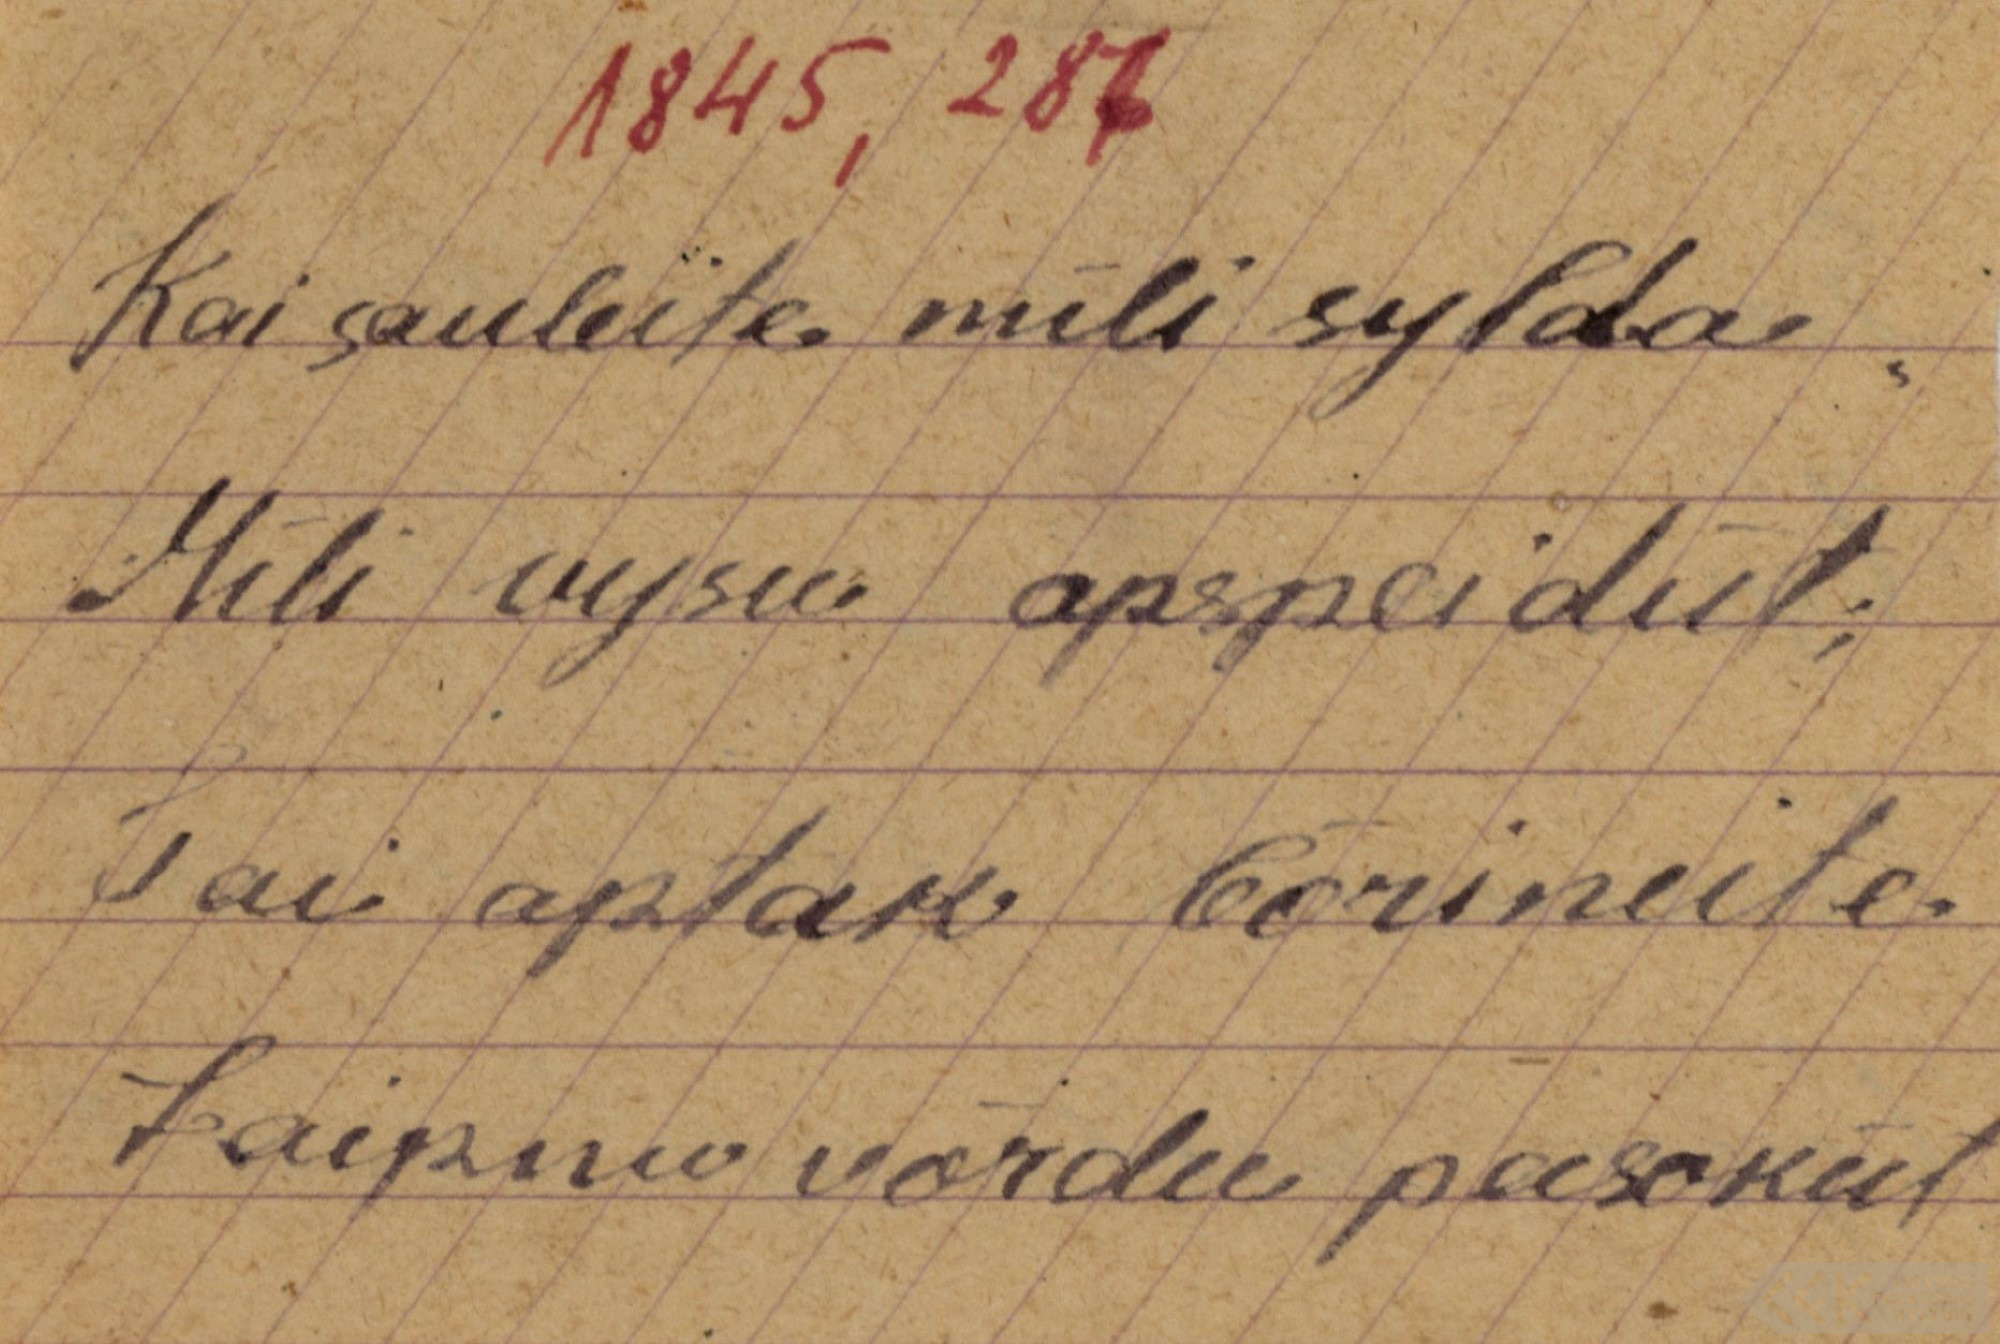 1845, 287
Kai sauleite mīli sylda,
Mīli vysu apspeidūt;
Tai aptak bōrineite
Laipnu vōrdu pasokūt